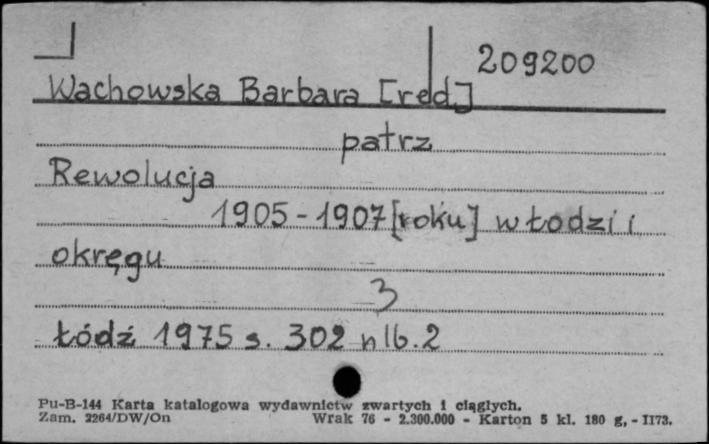 209200
Wachowska Barbara [red.]
patrz
Rewolucja
1905-1907 [roku] w Łodzi i
okręgu
3
Łódź 1975 s. 302 nlb. 2
Pu-B-144 Karta katalogowa wydawnictw zwartych i ciągłych.
Zam. 2264/DW/On Wrak 76 - 2.300.000 - Karton 5 kl. 180 g, - II73.